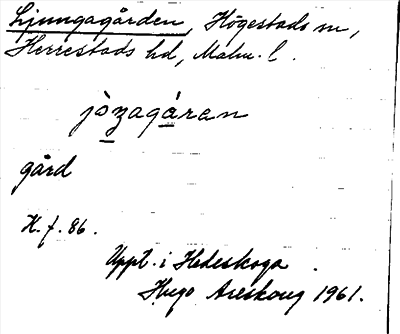 Ljungagården, Högestads sn,
Herrestads hd, Malm. l.
jòzagáran
gård
H. f. 86.
Uppt. i Hedeskoga
Hugo Areskoug 1961.